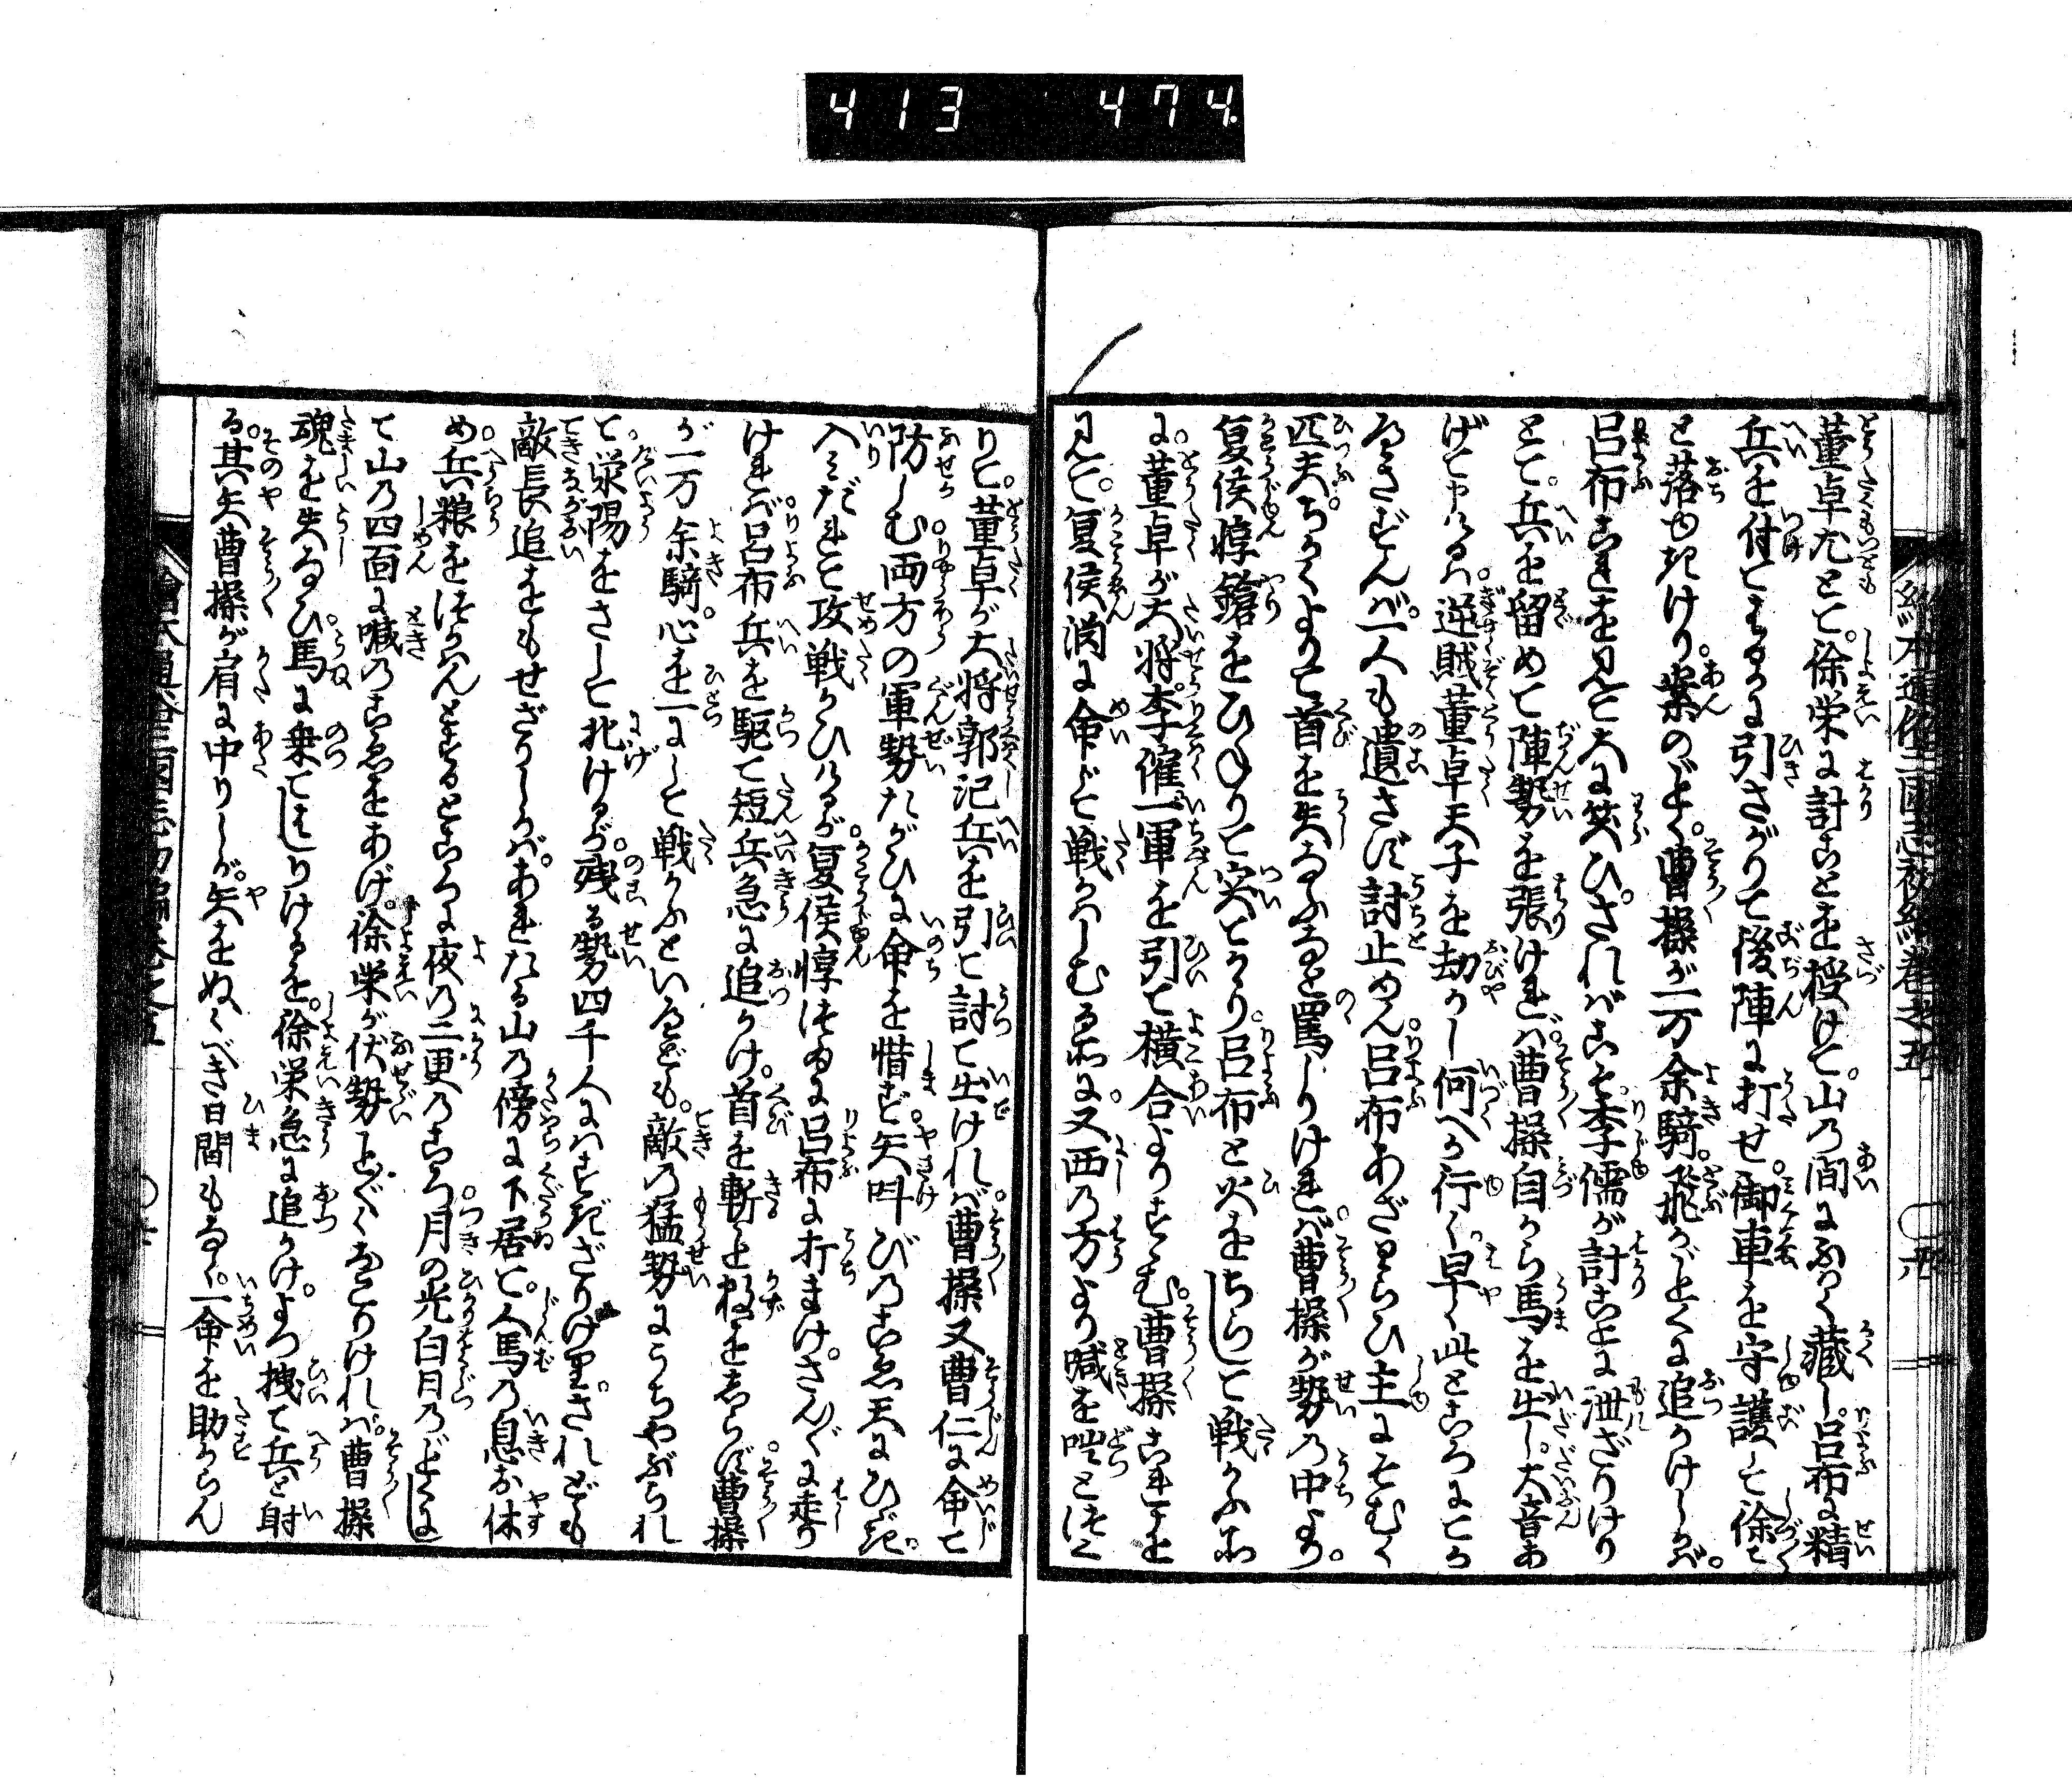 413 474.
繪本通俗三國志初編巻之五
董卓尤とて。徐栄に計ことを授けて。山の間にふかく蔵し呂布に精
兵を付てはるかに引さがりて後陣に打せ。御車を守護して徐々
と落ゆきけり。案のごとく。曹操が一万余騎。飛がごとくに追かけしかば。
呂布これを見て大に笑ひ。さればこそ。李儒が計ことに泄ざりけり
とて。兵を留めて陣勢を張ければ。曹操自から馬を出し。大音あ
げて申けるは。逆賊董卓天子を劫かし何へか行く。早く此ところにてか
匹夫。ちかくよりて首を失なふなと罵しりければ。曹操が勢の中より。
夏侯惇鎗をひねりて突てかゝり。呂布と火をちらして戦かふ所
に。董卓が大将。李傕一軍を引て横合よりすゝむ。曹操これを
見て。夏侯淵に命じて戦かはしむる所に。又西の方より喊を咄とつく
りて。董卓が大将郭汜兵を引て討て出ければ。曹操又曹仁に命て
防しむ両方の軍勢たがひに命を惜まず。矢叫びのこゑ天にひゞき。
入みだれて攻戦かひけるが。夏侯惇つゐに呂布に打まけ。さんぐに走り
ければ。呂布兵を駆て短兵急に追かけ。首を斬こと数をしらず。曹操
が一万余騎。心を一にして戦かふといへども。敵の猛勢にうちやぶられ
て。滎陽をさして北げけるが。残る勢四千人にはすぎざりけり。されども
敵長追をもせざりしかば。あれたる山の傍に下居て。人馬の息を休
め。兵粮をつかはんとするところに夜の二更のころ。月の光白日のごとくに
て山の四面に喊のこゑをあげ。徐栄が伏勢こと〴〵くおこりければ。曹操
魂を失なひ。馬に乗てはしりけるを。徐栄急に追かけ。よつ拽て兵と射
る。其矢曹操が肩に中りしが。矢をぬくべき日間もなく。一命を助からん